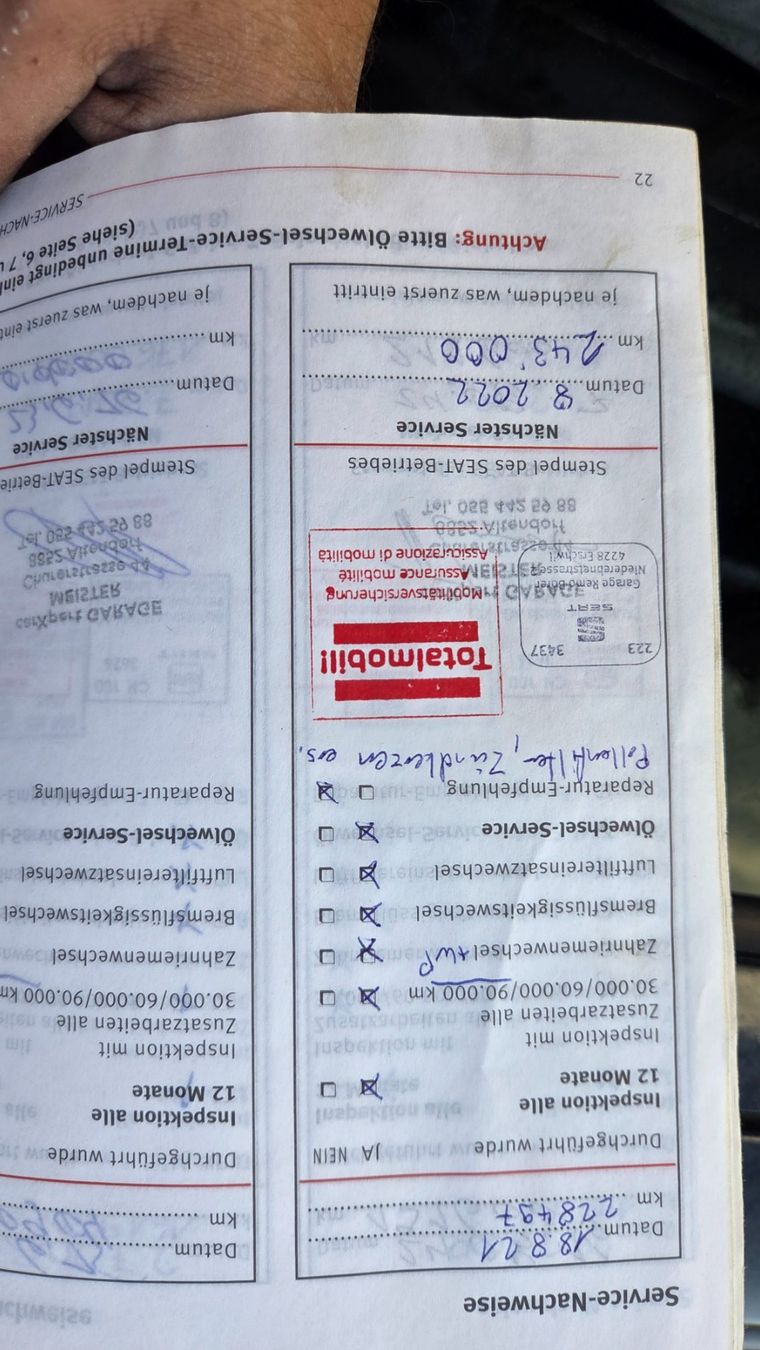 Service-Nachweise
Datum 18 8 21
km 228497
Durchgeführt wurde JA NEIN
Inspektion alle
12 Monate
Inspektion mit
Zusatzarbeiten alle
30.000/60.000/90.000 km
Zahnriemenwechsel +WP
Bremsflüssigkeitswechsel
Luftfiltereinsatzwechsel
Ölwechsel-Service
Reparatur-Empfehlung
Pollenfilter, Zündkerzen ers.
223 3437
SEAT
Garage Remo Borer
4228 Erschwil
Totalmobil!
Mobilitätsversicherung
Assurance mobilité
Assicurazione di mobilità
Stempel des SEAT-Betriebes
Nächster Service
Datum 8 2022
km 243'000
je nachdem, was zuerst eintritt
Datum
km
Durchgeführt wurde
Inspektion alle
12 Monate
Inspektion mit
Zusatzarbeiten alle
30.000/60.000/90.000 km
Zahnriemenwechsel
Bremsflüssigkeitswechsel
Luftfiltereinsatzwechsel
Ölwechsel-Service
Reparatur-Empfehlung
carXpert GARAGE
MEISTER
Churerstrasse 44
8852 Altendorf
Tel. 055 442 59 88
Stempel des SEAT-Betrie
Nächster Service
Datum
km
je nachdem, was zuerst eint
Achtung: Bitte Ölwechsel-Service-Termine unbedingt ein
(siehe Seite 6, 7 u
22
SERVICE-NACH